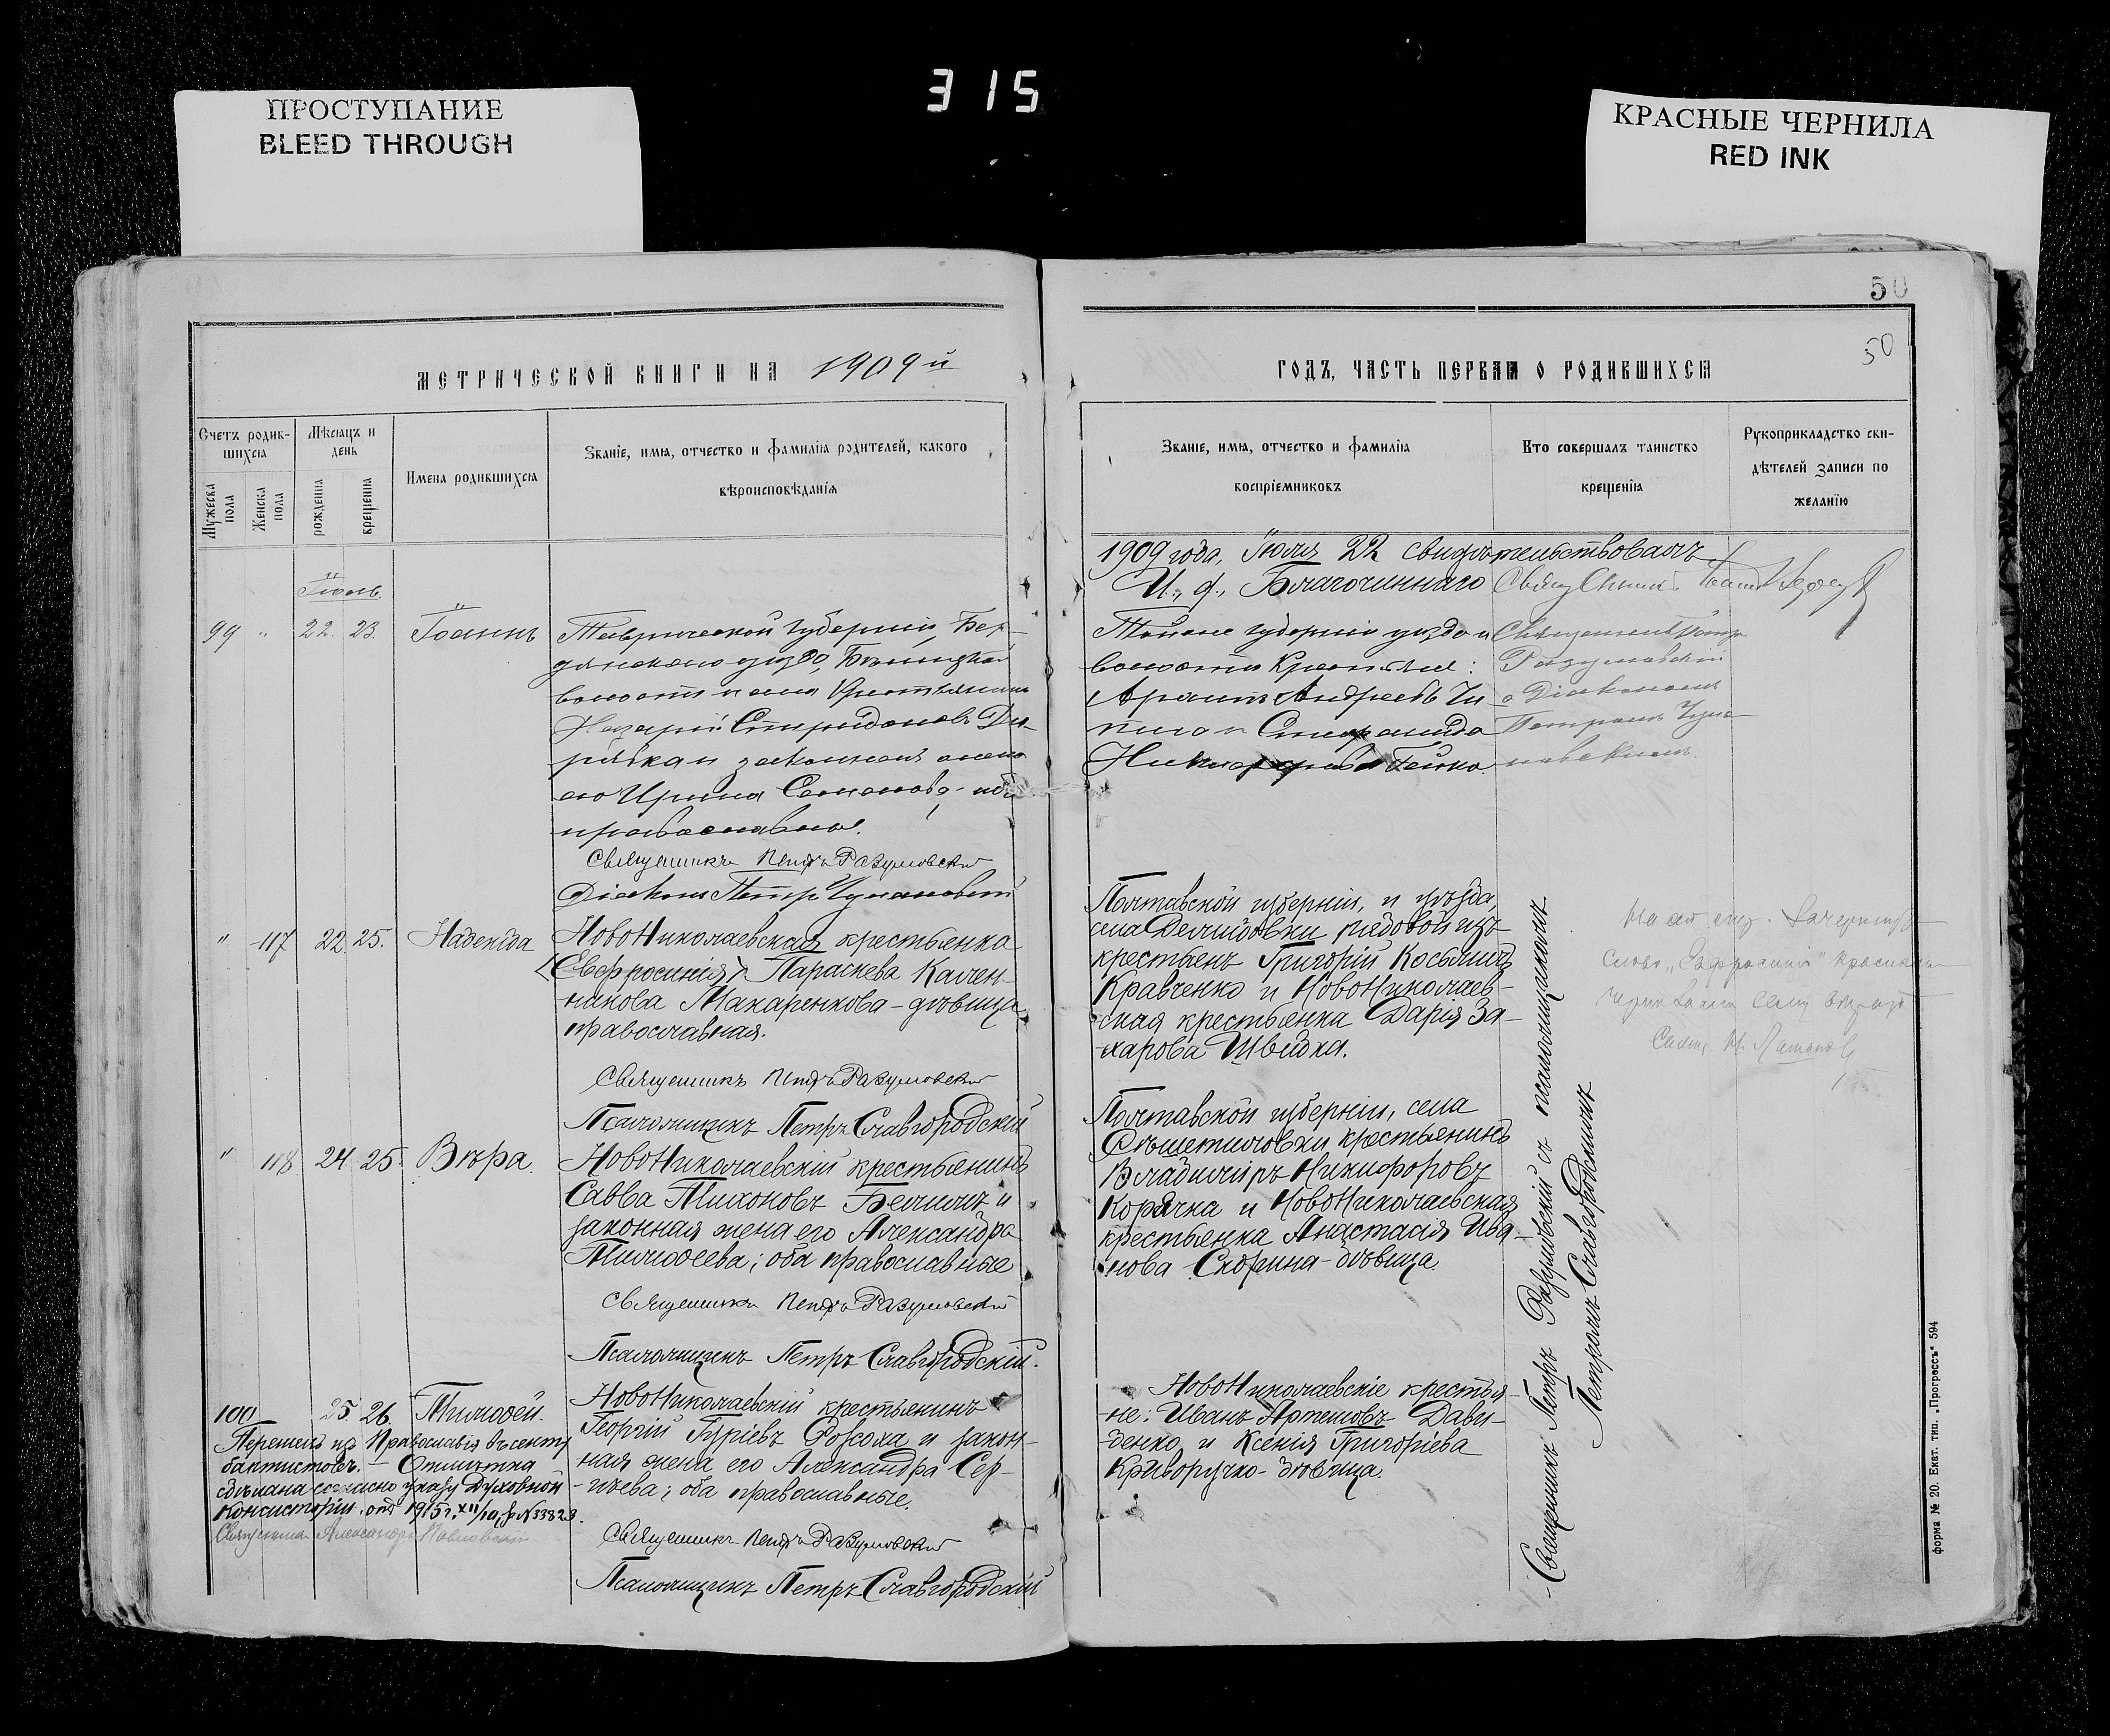 315
ПРОСТУПАНИЕ
BLEED THROUGH
КРАСНЫЕ ЧЕРНИЛА
RED INK
50
50
МЕТРИЧЕСКОЙ КНИГИ НА 1909й
ГОДЪ, ЧАСТЬ ПЕРВАЯ О РОДИВШИХСЯ
Счетъ родив-
шихся
Мужеска
пола
Женска
пола
Мѣсяцъ и
день
рожденія
крещенія
Имена родившихся
Званіе, имя, отчество и фамилія родителей, какого
вѣроисповѣданія
Званіе, имя, отчество и фамилія
воспріемниковъ
Кто совершалъ таинство
крещенія
Рукоприкладство сви-
дѣтелей записи по
желанію
1909 года, Іюля 22 свидѣтельствовалъ
И., д., Благочиннаго
Іюль.
99 " 22. 23. Іоаннъ
Таврической губерніи, Бер-
дянскаго уѣзда,
волости и села крестьянинъ
Назарій Спиридоновъ
и законная жена
его Ирина Семенова, оба
православные.
Священникъ Петръ Разумовскій
Діаконъ Петръ
Тойже губерніи уѣзда и
волости крестьяне:
Андреевъ
и
Священникъ Петръ
Разумовскій
съ Діакономъ
Петромъ
" 117 22. 25. Надежда
НовоНиколаевская крестьянка
<Евфросинія> Параскева Калин-
никова Макаренкова - дѣвица,
православная.
Священникъ Петръ Разумовскій
Псаломщикъ Петръ Славгородскій
Полтавской губерніи, и уѣзда,
села Демидовки рядовой изъ
крестьянъ Григорій Косьминъ
Кравченко и НовоНиколаев-
ская крестьянка Дарія За-
харова Швидка.
слово „Евфросинія" красными
" 118 24 25. Вѣра.
НовоНиколаевскій крестьянинъ
Савва Тихоновъ Беликъ и
законная жена его Александра
Тимоѳеева; оба православные
Священникъ Петръ Разумовскій
Псаломщикъ Петръ Славгородскій.
Полтавской губерніи, села
Рѣшетиловки крестьянинъ
Владиміръ Никифоровъ
Корячка и НовоНиколаевская
крестьянка Анастасія Ива-
нова Скорина - дѣвица.
100 25 26. Тимоѳей.
НовоНиколаевскій крестьянинъ
Георгій Гуріевъ Розсоха и закон-
ная жена его Александра Сер-
гѣева; оба православные.
Священникъ Петръ Разумовскій
Псаломщикъ Петръ Славгородскій
Перешелъ изъ Православія въ секту
баптистовъ. - Отмѣтка
сдѣлана согласно указу Духовной
Консисторіи отъ 1915 г. XII/10 № 33823.
Священникъ Александръ Павловскій
НовоНиколаевскіе крестья-
не: Иванъ Артемовъ Дави-
денко и Ксенія Григоріева
Криворучко - дѣвица.
Священникъ Петръ Разумовскій съ псаломщикомъ
Петромъ Славгородскимъ
форма № 20. Екат. тип. „Прогрессъ" 594